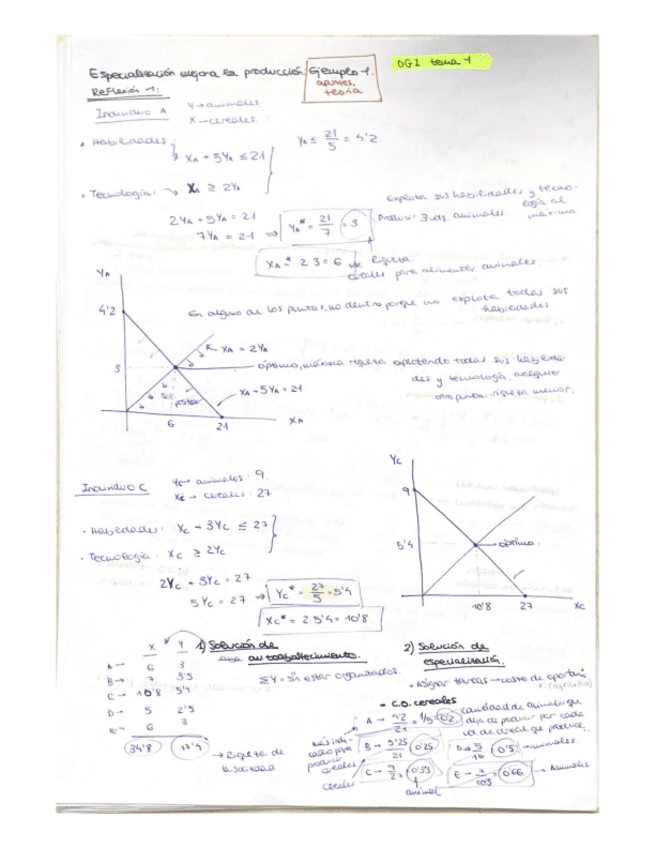 Especialización mejora la producción: Ejemplo 1.
apuntes,
teoría
DG2 tema 1
Reflexión 1:
Individuo A
Y → animales
X → cereales.
• Habilidades:
XA + 5YA ≤ 21
YA ≤ 21/5 = 4'2
• Tecnología: → XA ≥ 2YA
2YA + 5YA = 21
7YA = 21 ⇒ YA* = 21/7 = 3
Producir 3 uds. animales
Explota sus habilidades y tecno-
logía al
máximo
XA* = 2·3 = 6
Riqueza
cereales para alimentar animales.
YA
4'2
3
6
21
XA
En alguno de los puntos, no dentro porque no explota todas sus
habilidades
XA = 2YA
óptimo, máxima riqueza explotando todas sus habilida-
des y tecnología, cualquier
otro punto, riqueza menor.
XA + 5YA = 21
Individuo C
Yc → animales: 9
Xc → cereales: 27
• Habilidades: Xc + 3Yc ≤ 27
• Tecnología: Xc ≥ 2Yc
2Yc + 3Yc = 27
5Yc = 27 ⇒ Yc* = 27/5 = 5'4
Xc* = 2·5'4 = 10'8
Yc
9
5'4
óptimo
10'8
27
Xc
X Y
A → 6 3
B → 7 3'5
C → 10'8 5'4
D → 5 2'5
E → 6 3
34'8 17'4 → Riqueza de
la sociedad
1) Solución de
autoabastecimiento.
ΣY = sin estar organizados.
2) Solución de
especialización.
• Asignar tareas → coste de oportuni
• C.O. cereales
A → 4'2/21 = 1/5 = 0'2
cantidad de animales que
deja de producir por cada
ud de cereal que produce
B → 5'25/21 0'25
D → 5/10 0'5 → animales.
C → 9/27 = 0'33
E → 0'66 → Animales
producir
cereales
Cereales
animal